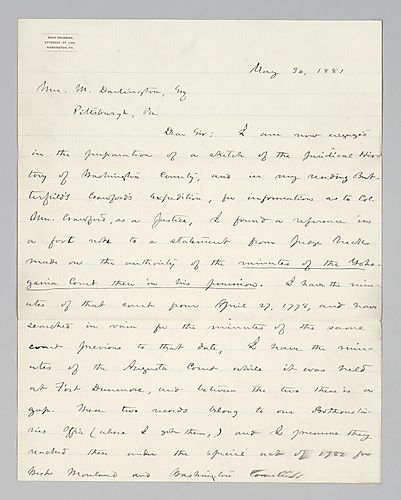 BOYD CRUMRINE,
ATTORNEY AT LAW
WASHINGTON, PA.
May 30, 1881
Wm. M. Darlington, Esq
Pittsburgh, Pa
Dear Sir: I am now engaged
in the preparation of a sketch of the Juridical His-
tory of Washington County, and in my reading But-
terfield's Crawford's Expedition, for information as to Col.
Wm. Crawford, as a Justice, I found a reference in
a foot note to a statement from Judge Veech
made on the authority of the minutes of the Yoho-
gania Court then in his possession. I have the min-
utes of that court from April 27, 1778, and have
searched in vain for the minutes of the same
court previous to that date, I have the min-
utes of the Augusta Court while it was held
at Fort Dunmore, and between the two there is a
gap. These two records belong to our Prothonota-
ries Office (where I got them,) and I presume they
reached there under the special act of 1782 for
West Moreland and Washington Counties